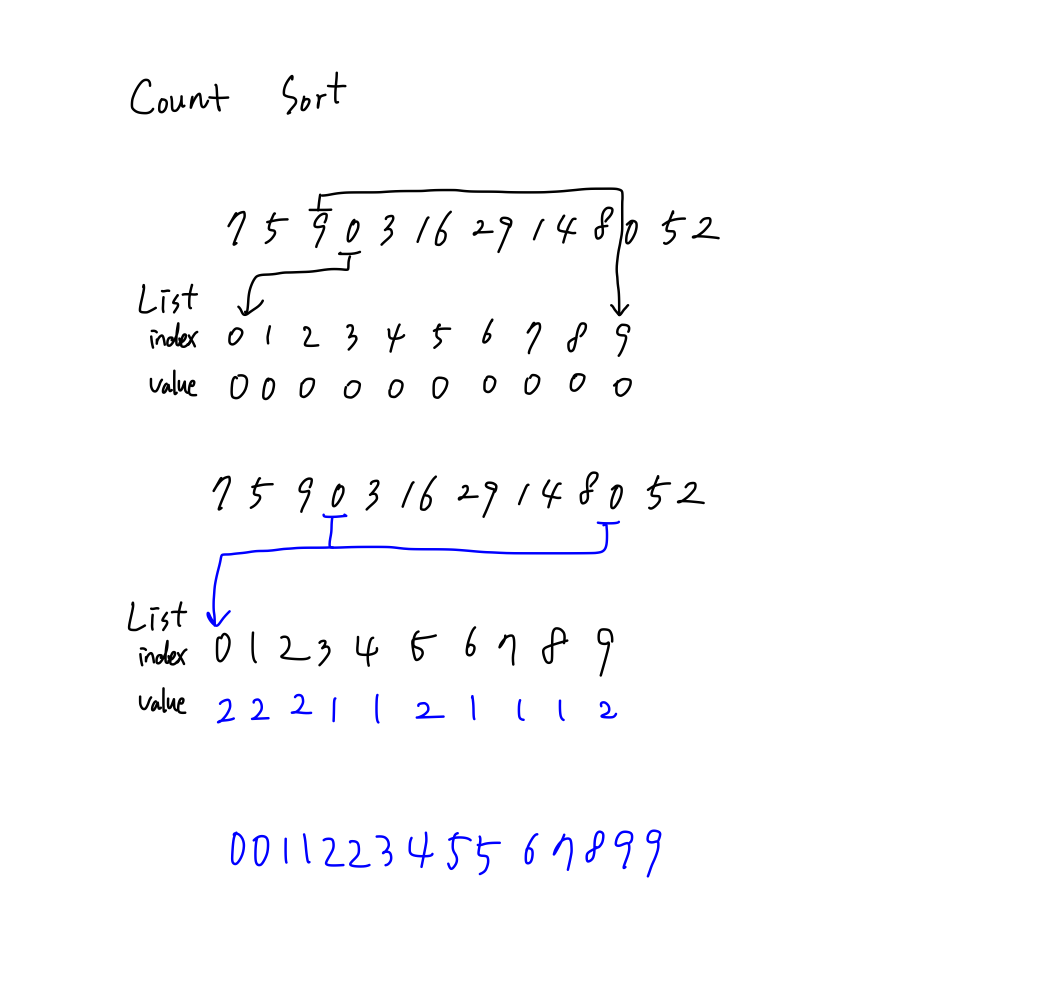 Count Sort
7 5 9 0 3 1 6 2 9 1 4 8 0 5 2
List
index 0 1 2 3 4 5 6 7 8 9
value 0 0 0 0 0 0 0 0 0 0
7 5 9 0 3 1 6 2 9 1 4 8 0 5 2
List
index 0 1 2 3 4 5 6 7 8 9
value 2 2 2 1 1 2 1 1 1 2
0 0 1 1 2 2 3 4 5 5 6 7 8 9 9